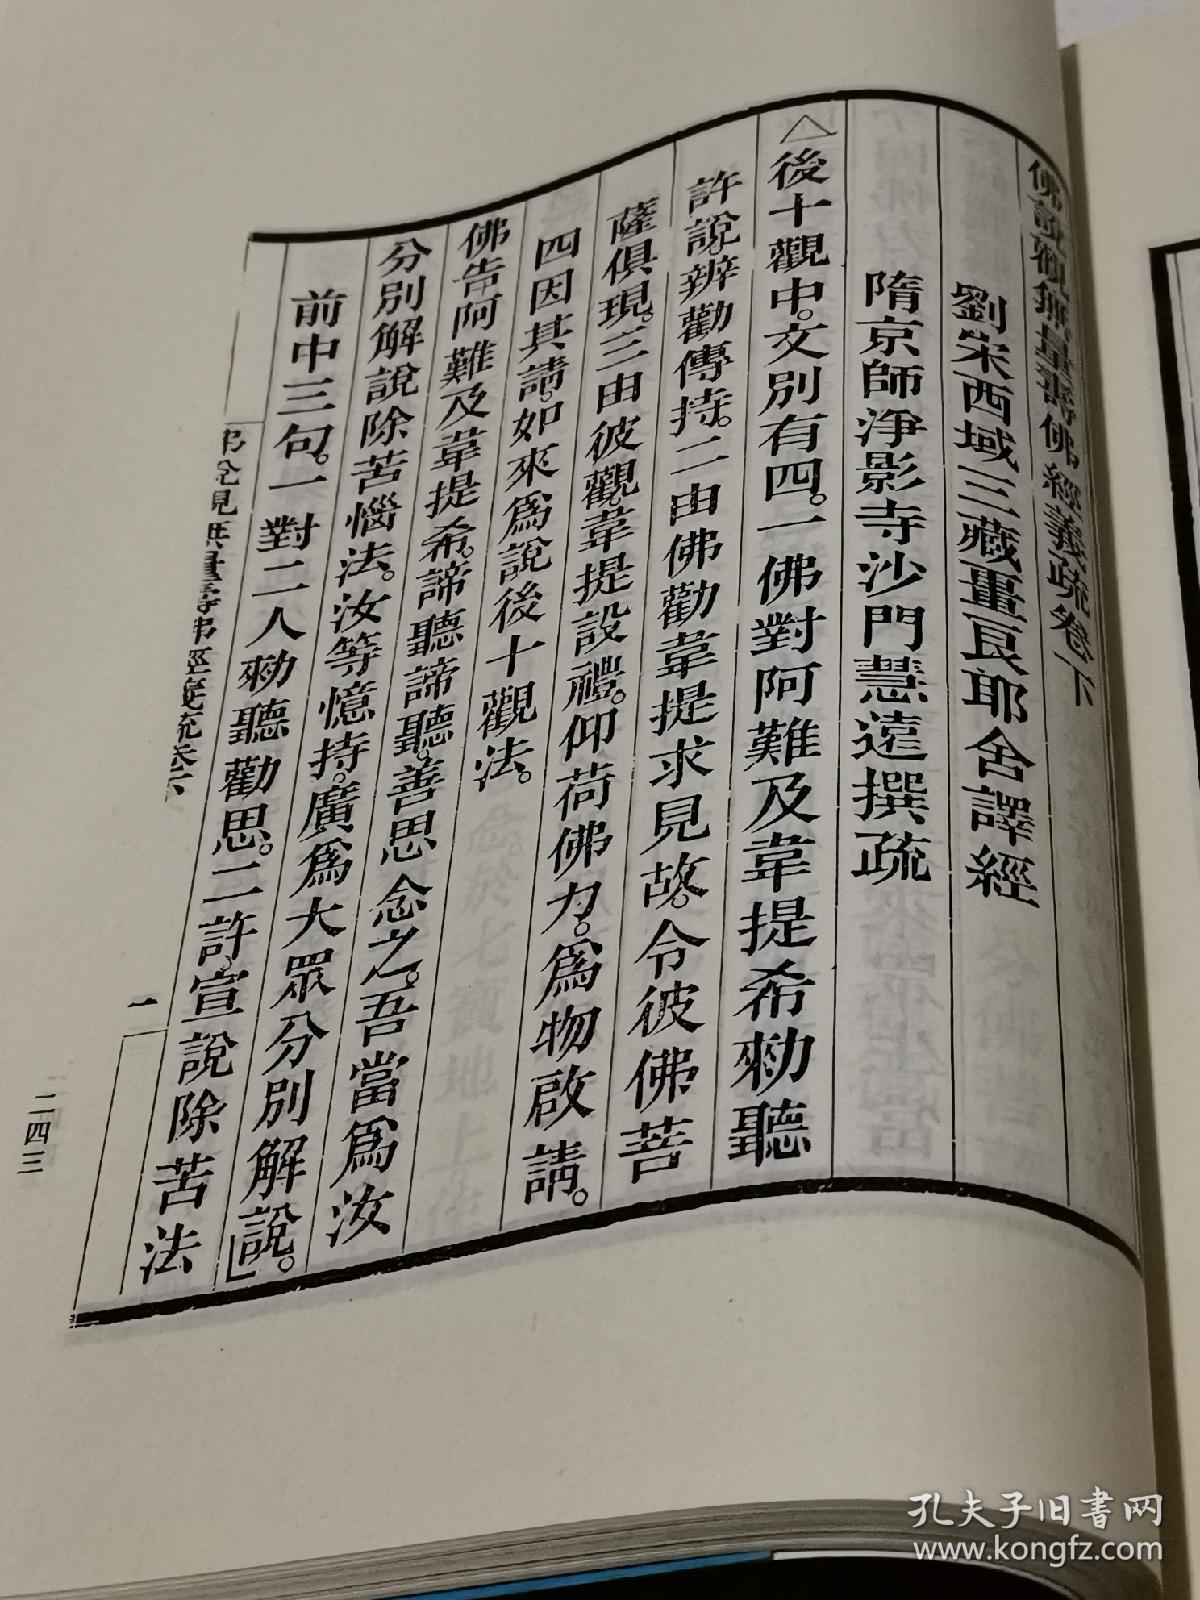 佛說觀無量壽佛經義疏卷下
劉宋西域三藏畺良耶舍譯經
隋京師淨影寺沙門慧遠撰疏
△後十觀中。文別有四。一佛對阿難及韋提希勑聽
許說。辨勸傳持。二由佛勸韋提求見故。令彼佛菩
薩俱現。三由彼觀韋提設禮。仰荷佛力。爲物啟請。
四因其請。如來爲說後十觀法。
佛告阿難及韋提希。諦聽諦聽。善思念之。吾當爲汝
分別解說除苦惱法。汝等憶持。廣爲大眾分別解說。」
前中三句。一對二人勑聽勸思。二許宣說除苦法
二
二四三
孔夫子旧书网
www.kongfz.com